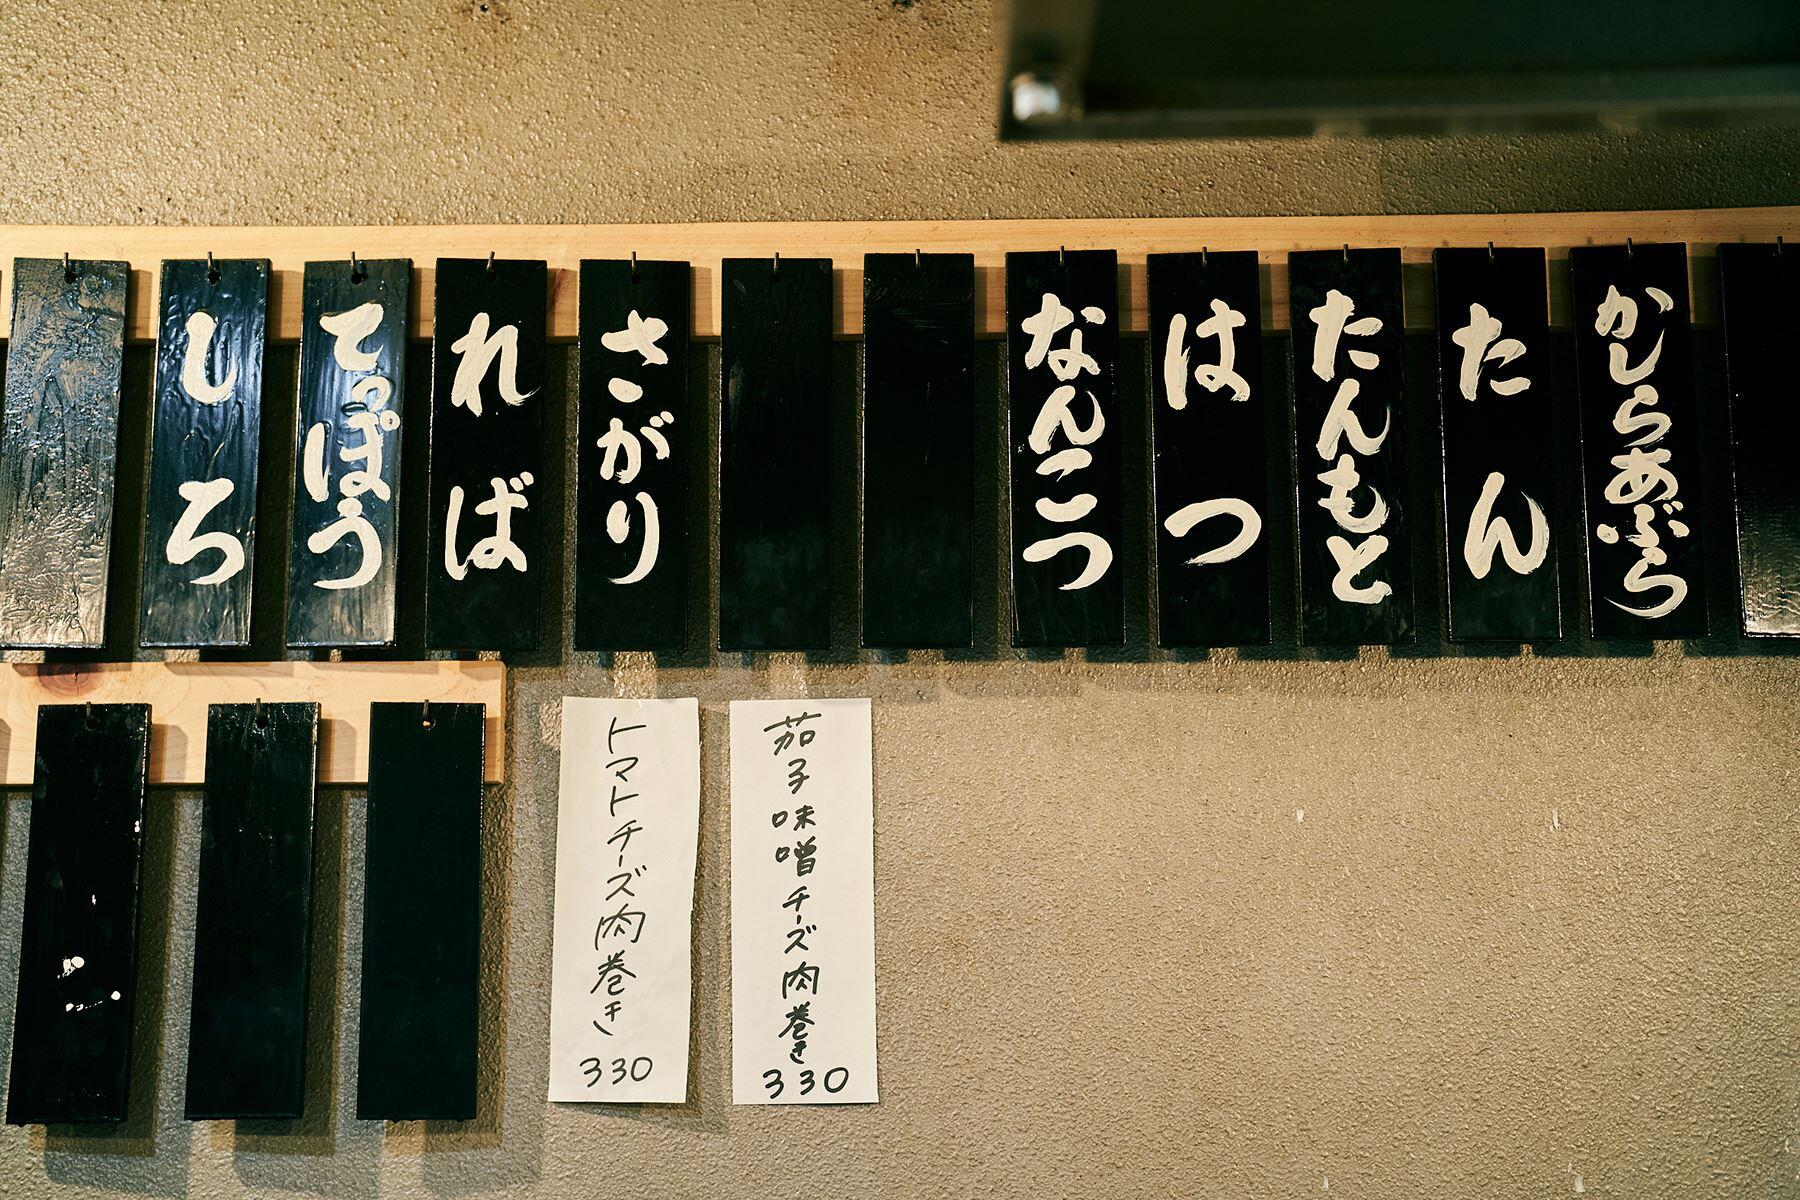 かしらあぶら
たん
たんもと
はつ
なんこつ
さがり
れば
てっぽう
しろ
茄子味噌チーズ肉巻き
330
トマトチーズ肉巻き
330